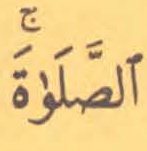 ٱلصَّلَوٰةَۚ